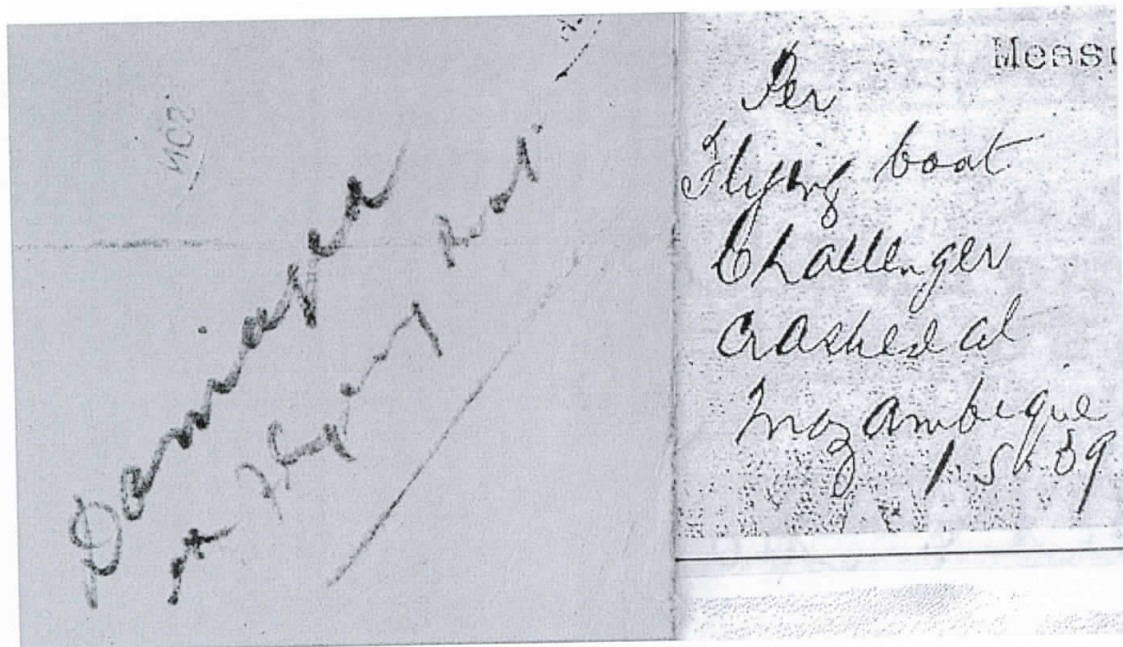 Damaged
Flying
Mess
Per
Flying boat
Challenger
crashed at
Mozambique